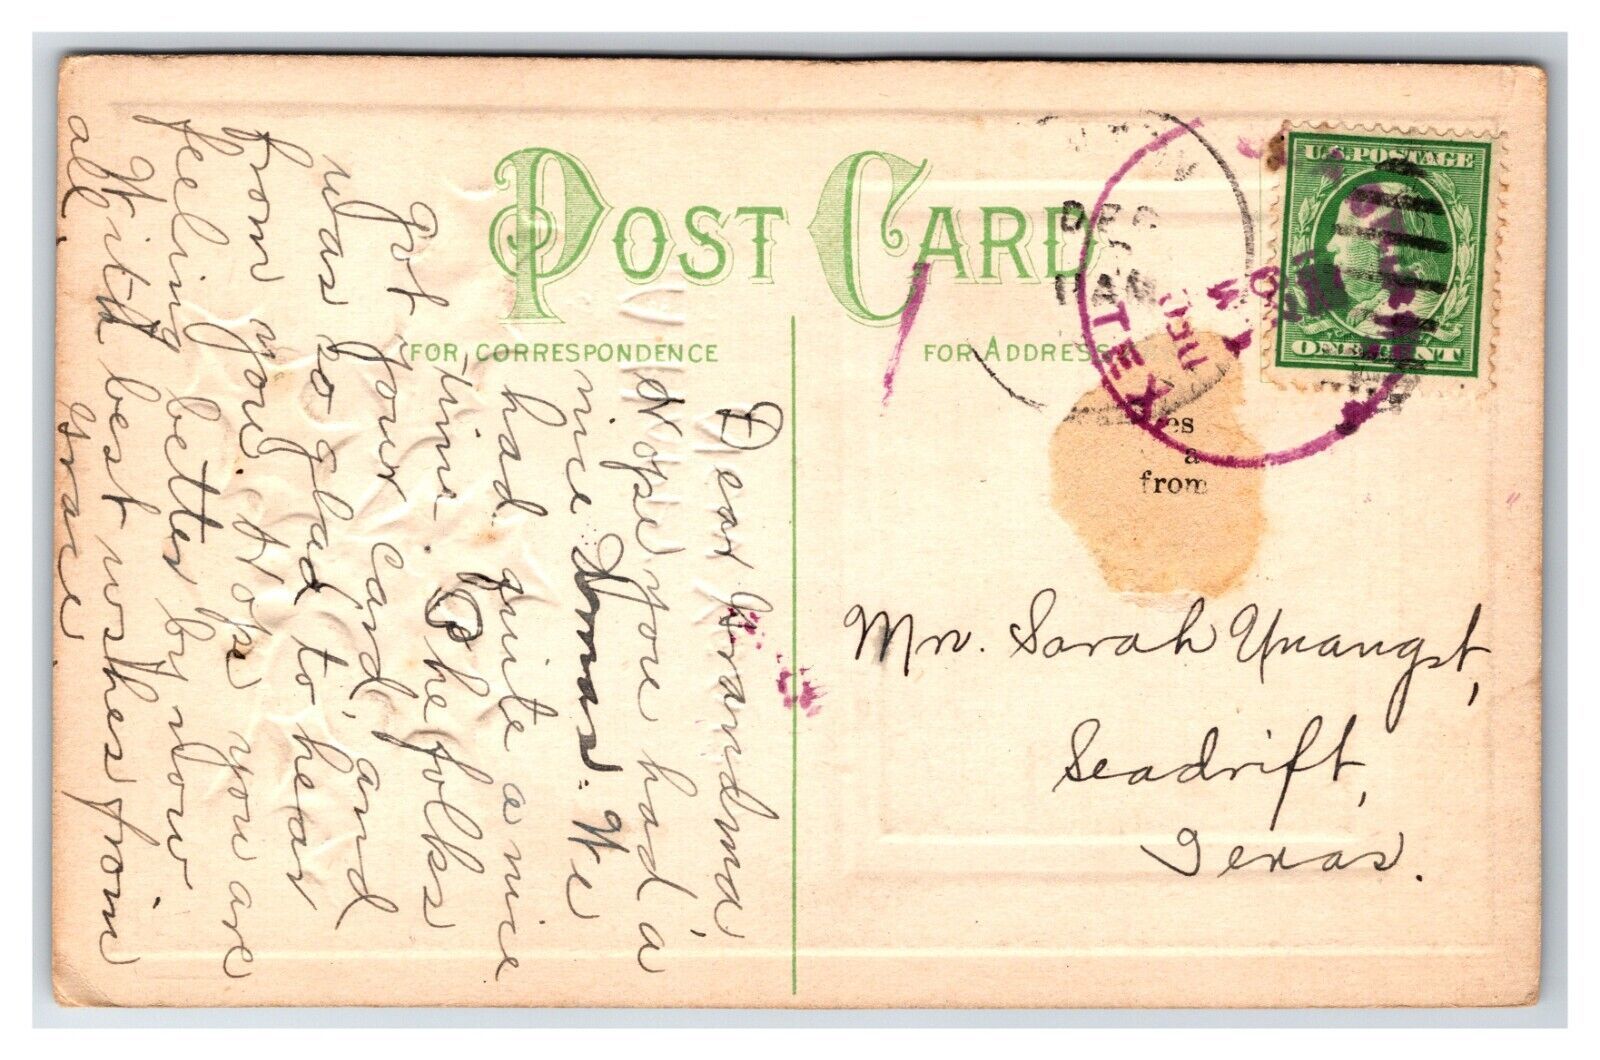 POST CARD
FOR CORRESPONDENCE
FOR ADDRESS
U.S. POSTAGE
ONE CENT
DEC
11 AM
TEX
es
a
from
Mrs. Sarah Unangst,
Seadrift,
Texas.
Dear Grandma,
Hope you had a
nice Xmas. We
had quite a nice
time. The folks
got your card, and
was so glad to hear
from you. Hope you are
feeling better by now
With best wishes from
all
Grace